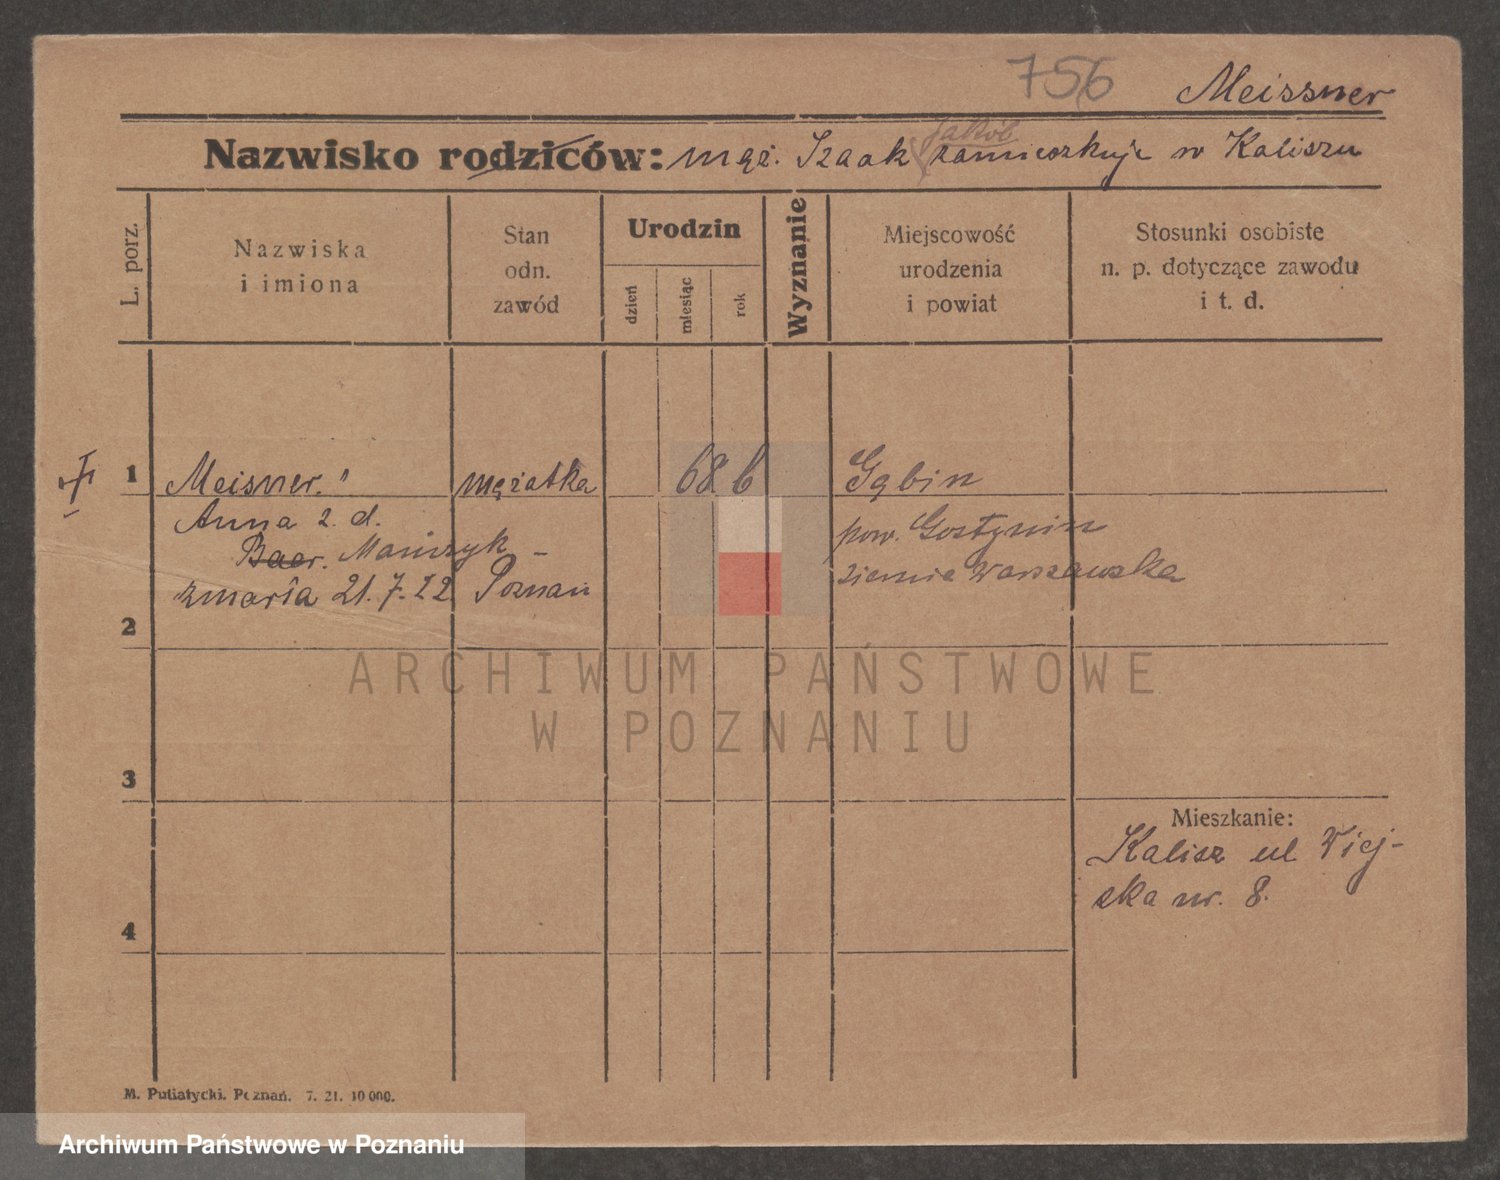 756
Meissner
Jakób
Nazwisko rodziców: mąż. Izaak zamieszkuje w Kaliszu
L. porz.
Nazwiska
i imiona
Stan
odn.
zawód
Urodzin
dzień
miesiąc
rok
Wyznanie
Miejscowość
urodzenia
i powiat
Stosunki osobiste
n. p. dotyczące zawodu
i t. d.
1
Meisner.
mężatka
68
Gąbin
Anna z. d.
pow. Gostynin
Baer.
zmarła 21.7.22. Poznań
ziemia Warszawska
2
ARCHIWUM PAŃSTWOWE
W POZNANIU
3
Mieszkanie:
Kalisz ul Wiej-
ska nr. 8.
4
M. Putiatycki. Poznań. 7. 21. 10 000.
Archiwum Państwowe w Poznaniu